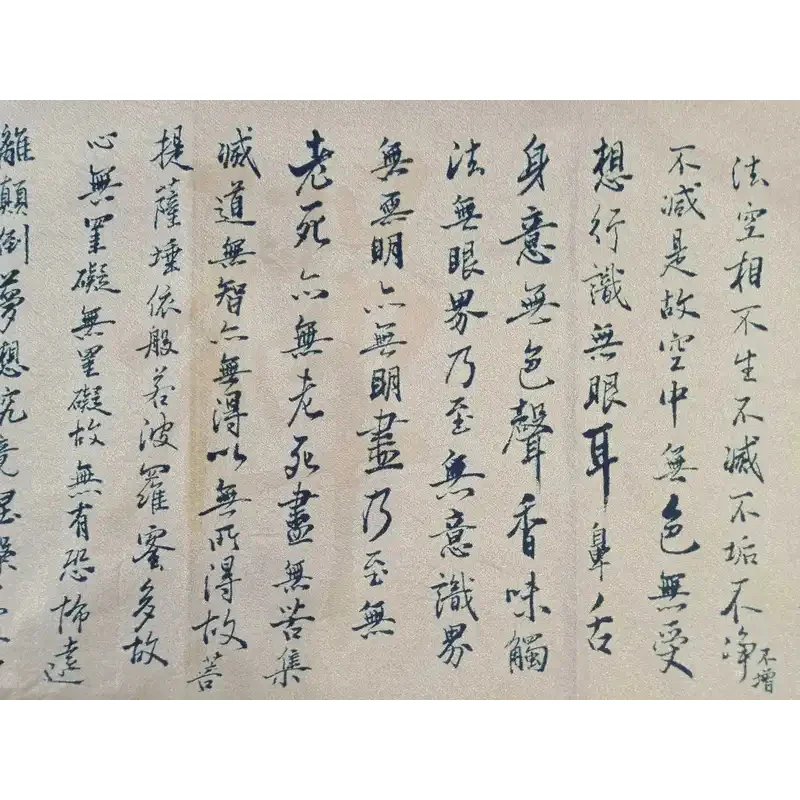 法空相不生不滅不垢不净不增
不減是故空中無色無受
想行識無眼耳鼻舌
身意無色聲香味觸
法無眼界乃至無意識界
無無明亦無明盡乃至無
老死亦無老死盡無苦集
滅道無智亦無得以無所得故菩
提薩埵依般若波羅蜜多故
心無罣礙無罣礙故無有恐怖遠
離顛倒夢想究竟涅槃